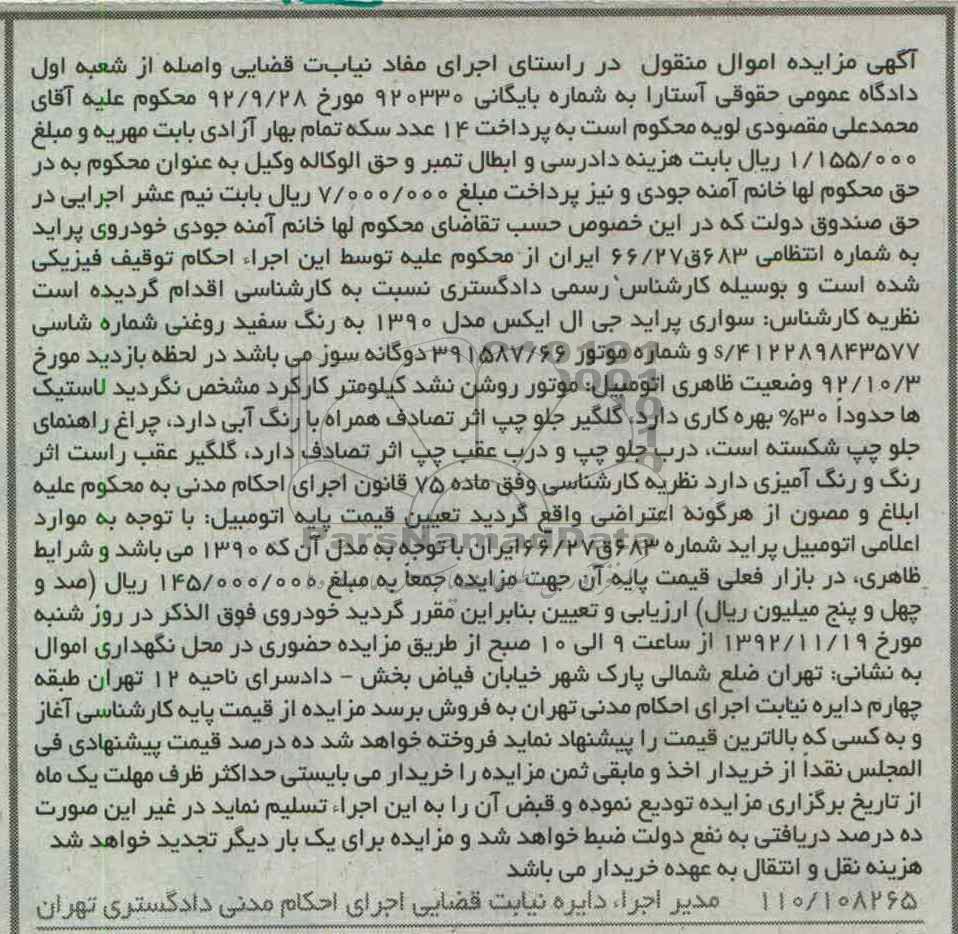 آگهی مزایده اموال منقول در راستای اجرای مفاد نیابت قضایی واصله از شعبه اول
دادگاه عمومی حقوقی آستارا به شماره بایگانی ۹۲۰۳۳۰ مورخ ۹۲/۹/۲۸ محکوم علیه آقای
محمدعلی مقصودی لویه محکوم است به پرداخت ۱۴ عدد سکه تمام بهار آزادی بابت مهریه و مبلغ
۱/۱۵۵/۰۰۰ ریال بابت هزینه دادرسی و ابطال تمبر و حق الوکاله وکیل به عنوان محکوم به در
حق محکوم لها خانم آمنه جودی و نیز پرداخت مبلغ ۷/۰۰۰/۰۰۰ ریال بابت نیم عشر اجرایی در
حق صندوق دولت که در این خصوص حسب تقاضای محکوم لها خانم آمنه جودی خودروی پراید
به شماره انتظامی ۶۸۳ق۶۶/۲۷ ایران از محکوم علیه توسط این اجراء احکام توقیف فیزیکی
شده است و بوسیله کارشناس رسمی دادگستری نسبت به کارشناسی اقدام گردیده است
نظریه کارشناس: سواری پراید جی ال ایکس مدل ۱۳۹۰ به رنگ سفید روغنی شماره شاسی
s/۴۱۲۲۸۹۸۴۳۵۷۷ و شماره موتور ۳۹۱۵۸۷/۶۶ دوگانه سوز می باشد در لحظه بازدید مورخ
۹۲/۱۰/۳ وضعیت ظاهری اتومبیل: موتور روشن نشد کیلومتر کارکرد مشخص نگردید لاستیک
ها حدوداً ۳۰% بهره کاری دارد، گلگیر جلو چپ اثر تصادف همراه با رنگ آبی دارد، چراغ راهنمای
جلو چپ شکسته است، درب جلو چپ و درب عقب چپ اثر تصادف دارد، گلگیر عقب راست اثر
رنگ و رنگ آمیزی دارد نظریه کارشناسی وفق ماده ۷۵ قانون اجرای احکام مدنی به محکوم علیه
ابلاغ و مصون از هرگونه اعتراضی واقع گردید تعیین قیمت پایه اتومبیل: با توجه به موارد
اعلامی اتومبیل پراید شماره ۶۸۳ق۶۶/۲۷ایران با توجه به مدل آن که ۱۳۹۰ می باشد و شرایط
ظاهری، در بازار فعلی قیمت پایه آن جهت مزایده جمعاً به مبلغ ۱۴۵/۰۰۰/۰۰۰ ریال (صد و
چهل و پنج میلیون ریال) ارزیابی و تعیین بنابراین مقرر گردید خودروی فوق الذکر در روز شنبه
مورخ ۱۳۹۲/۱۱/۱۹ از ساعت ۹ الی ۱۰ صبح از طریق مزایده حضوری در محل نگهداری اموال
به نشانی: تهران ضلع شمالی پارک شهر خیابان فیاض بخش - دادسرای ناحیه ۱۲ تهران طبقه
چهارم دایره نیابت اجرای احکام مدنی تهران به فروش برسد مزایده از قیمت پایه کارشناسی آغاز
و به کسی که بالاترین قیمت را پیشنهاد نماید فروخته خواهد شد ده درصد قیمت پیشنهادی فی
المجلس نقداً از خریدار اخذ و مابقی ثمن مزایده را خریدار می بایستی حداکثر ظرف مهلت یک ماه
از تاریخ برگزاری مزایده تودیع نموده و قبض آن را به این اجراء تسلیم نماید در غیر این صورت
ده درصد دریافتی به نفع دولت ضبط خواهد شد و مزایده برای یک بار دیگر تجدید خواهد شد
هزینه نقل و انتقال به عهده خریدار می باشد
۱۱۰/۱۰۸۲۶۵ مدیر اجراء دایره نیابت قضایی اجرای احکام مدنی دادگستری تهران
ParsNamadData